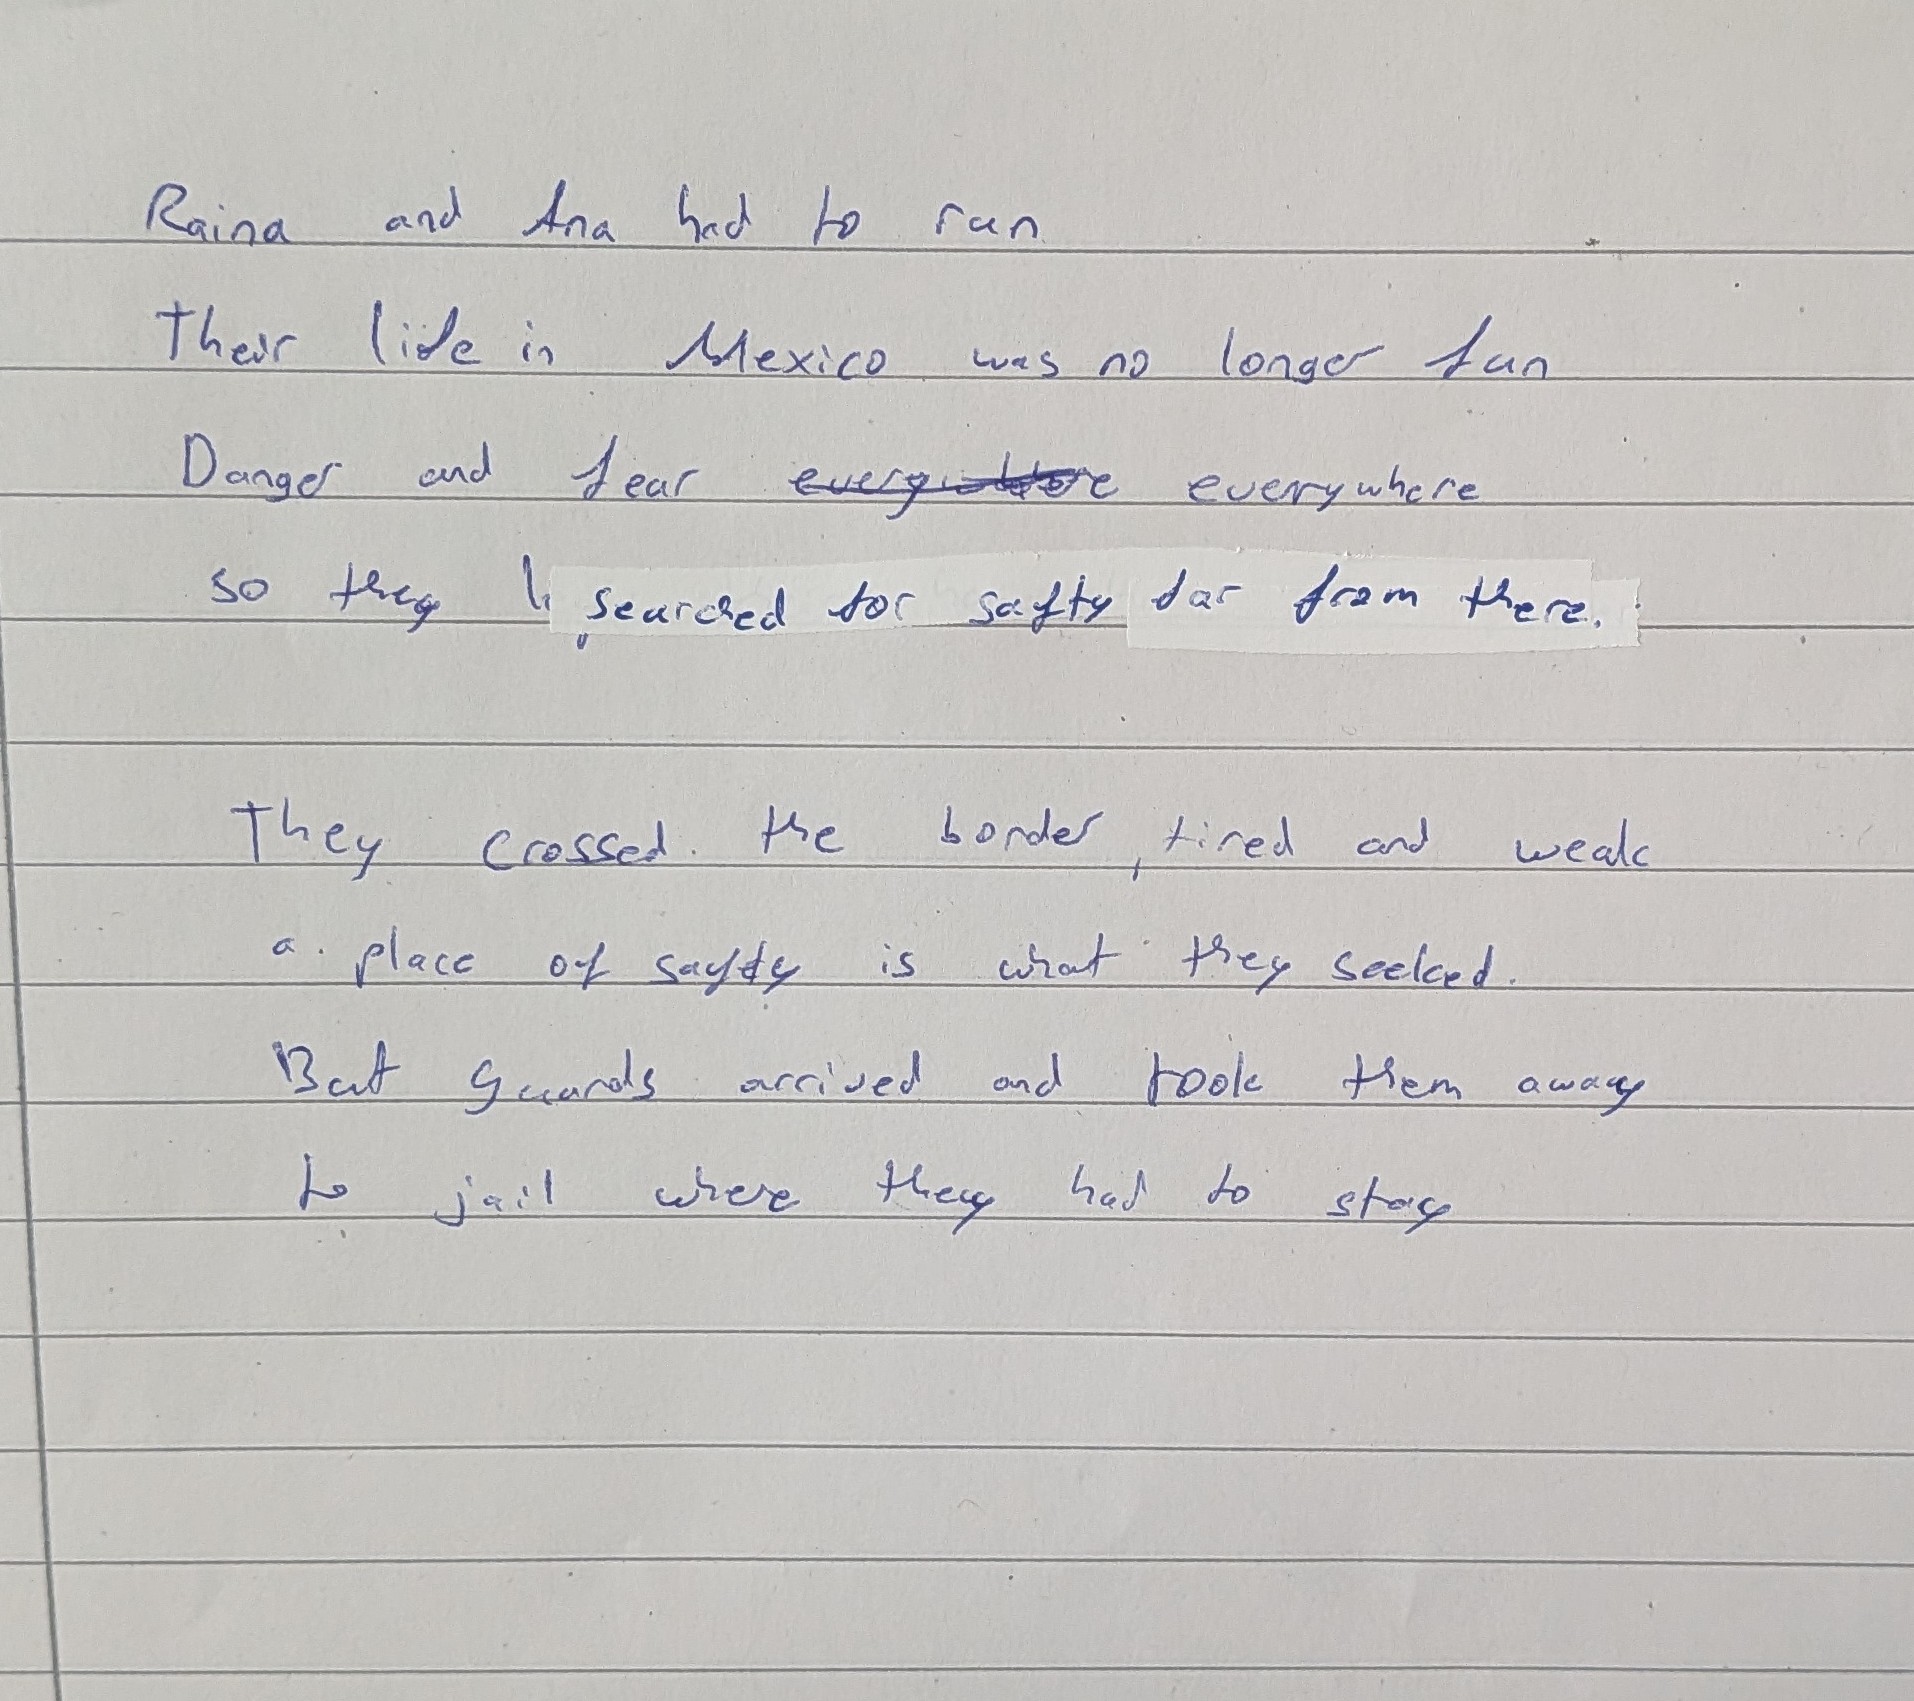 Raina and Ana had to run
Their life in Mexico was no longer fun
Danger and fear everywhere everywhere
so they searched for safty far from there.
They crossed the border, tired and weak
a place of safty is what they seeked.
But guards arrived and took them away
to jail where they had to stay